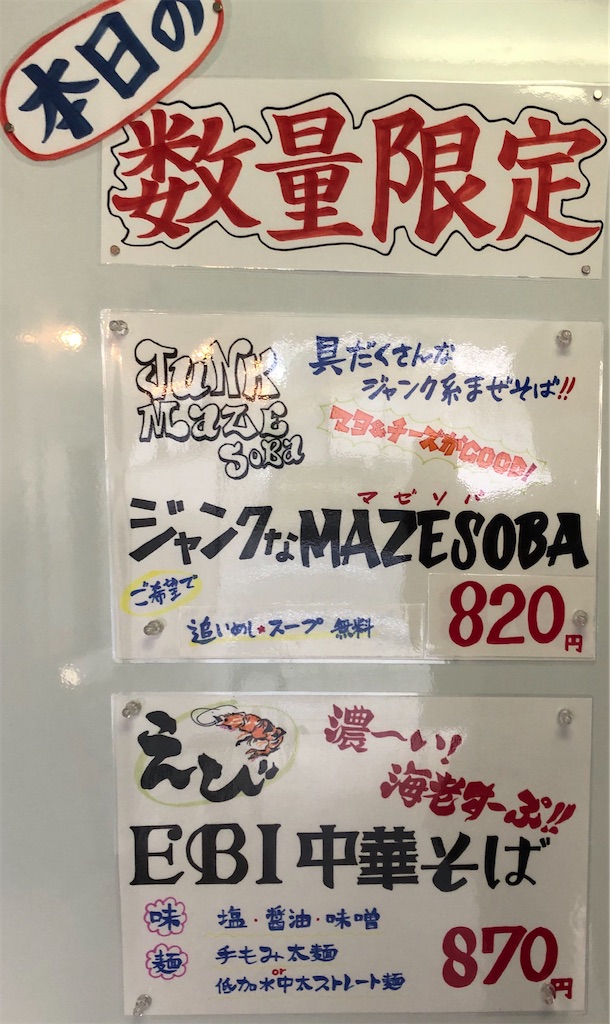 本日の
数量限定
JUNK
MAZE
SOBA
具だくさんな
ジャンク系まぜそば!!
マヨ&チーズがGOOD!
マゼソバ
ジャンクなMAZESOBA
ご希望で
追いめし★スープ 無料
820円
えび
濃〜い!
海老すーぷ!!
EBI中華そば
味 塩・醤油・味噌
麺 手もみ太麺
or
低加水中太ストレート麺
870円